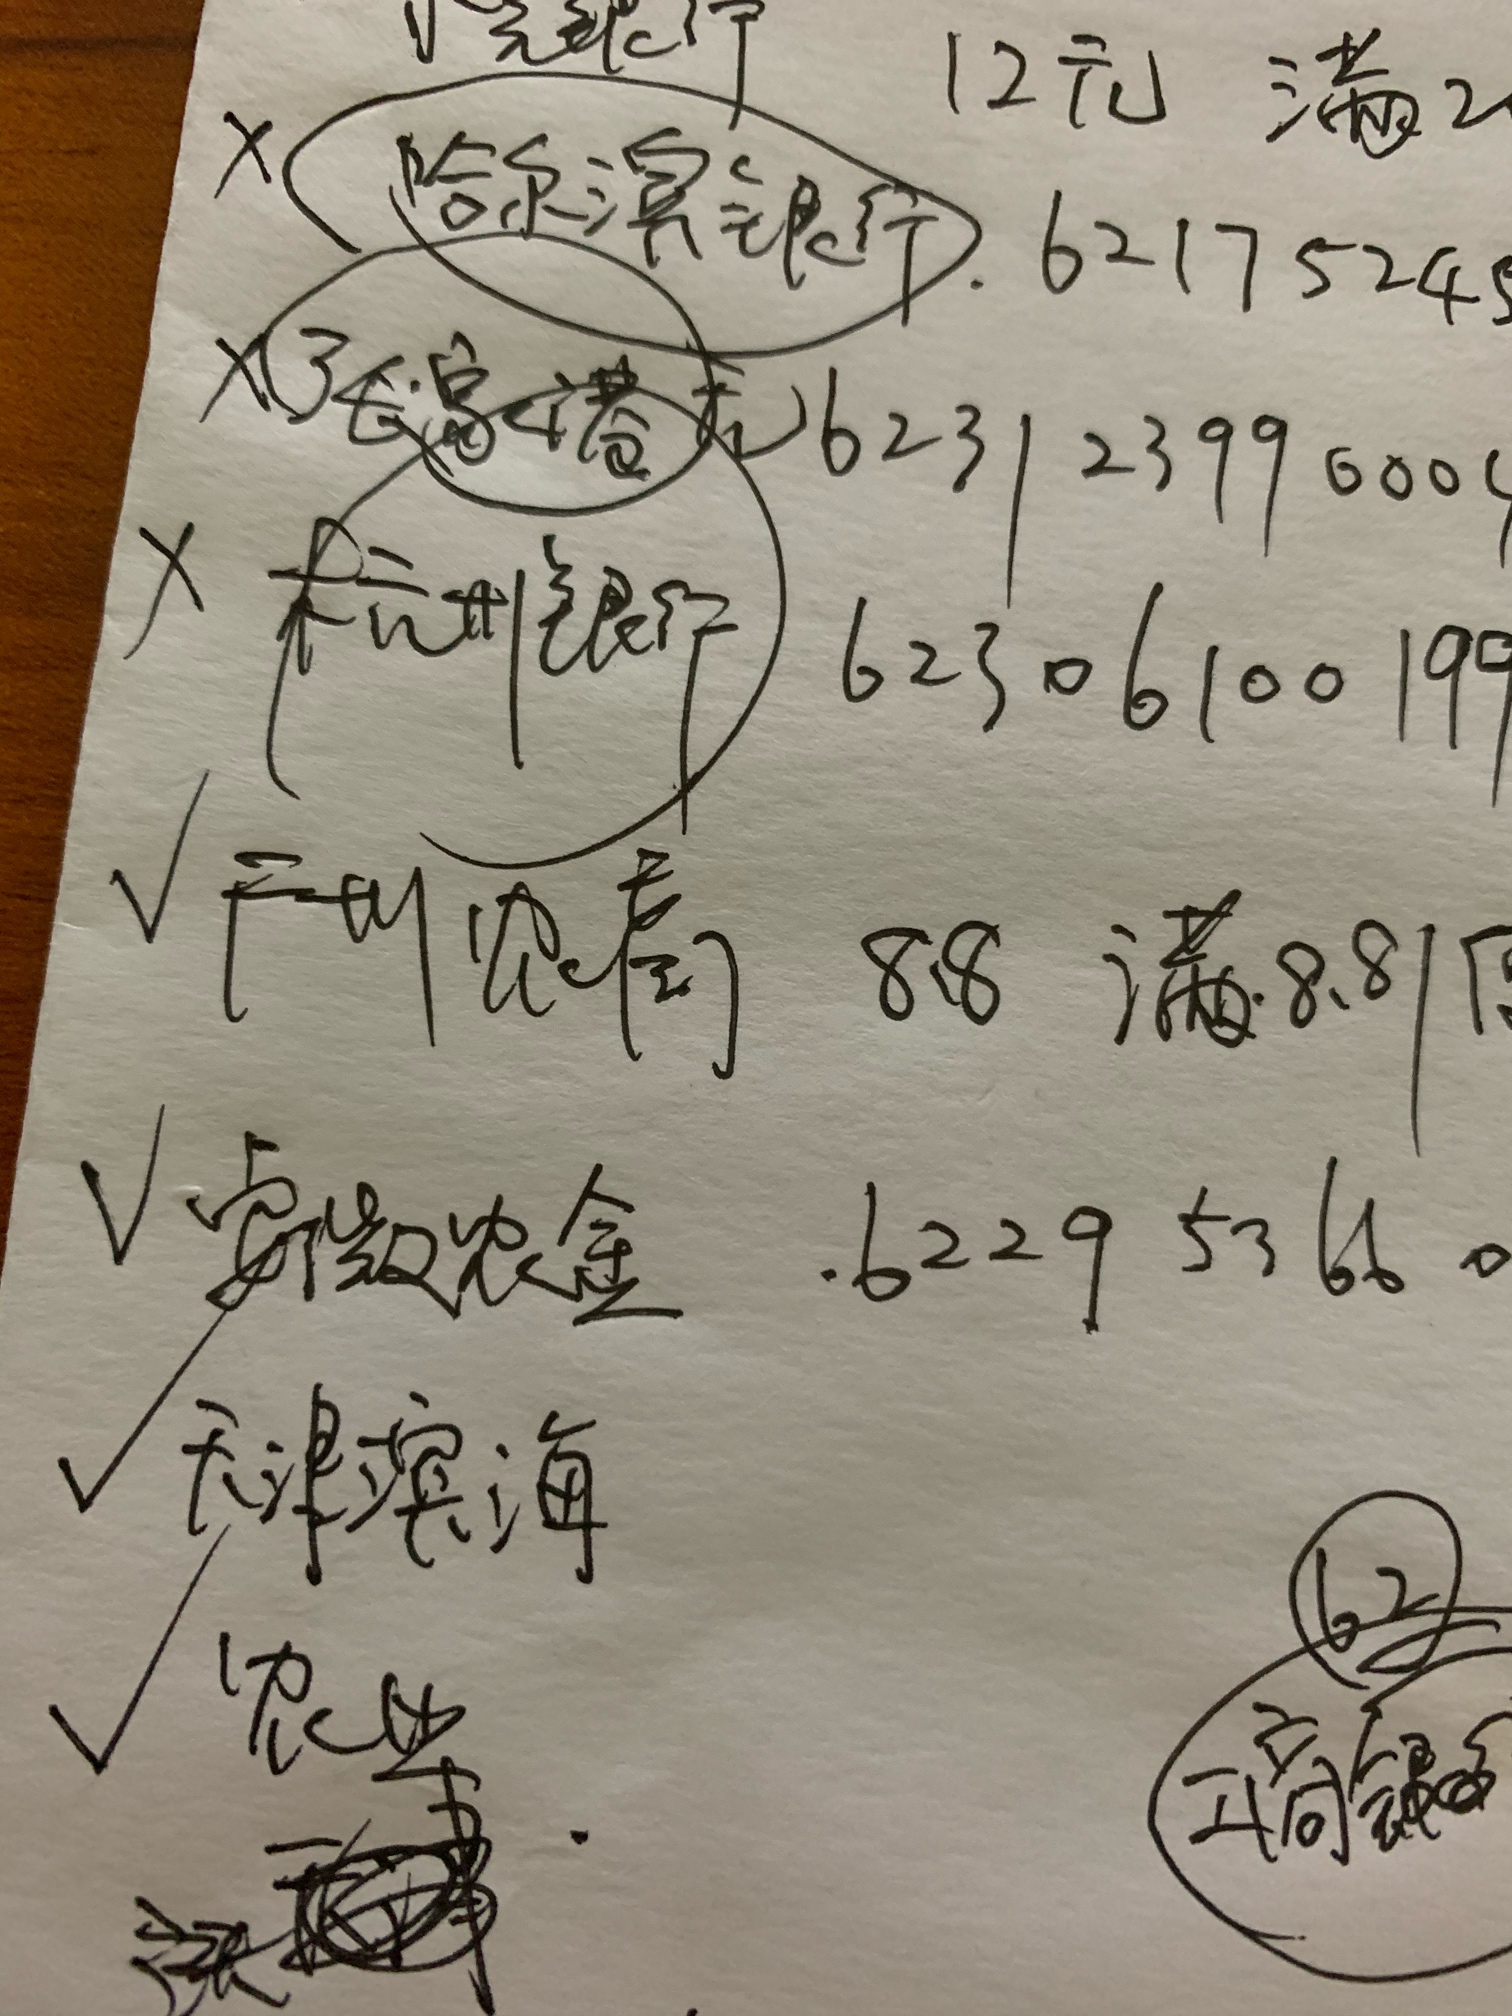 银行 12元 满2
× 哈尔滨银行. 6217 5245
× 623123990004
× 杭州银行 62306100199
√ 广州农商 8.8 满8.81
√ 安徽农金 .6229 5366 0
√ 天津滨海
√ 农业
62
工商银
张